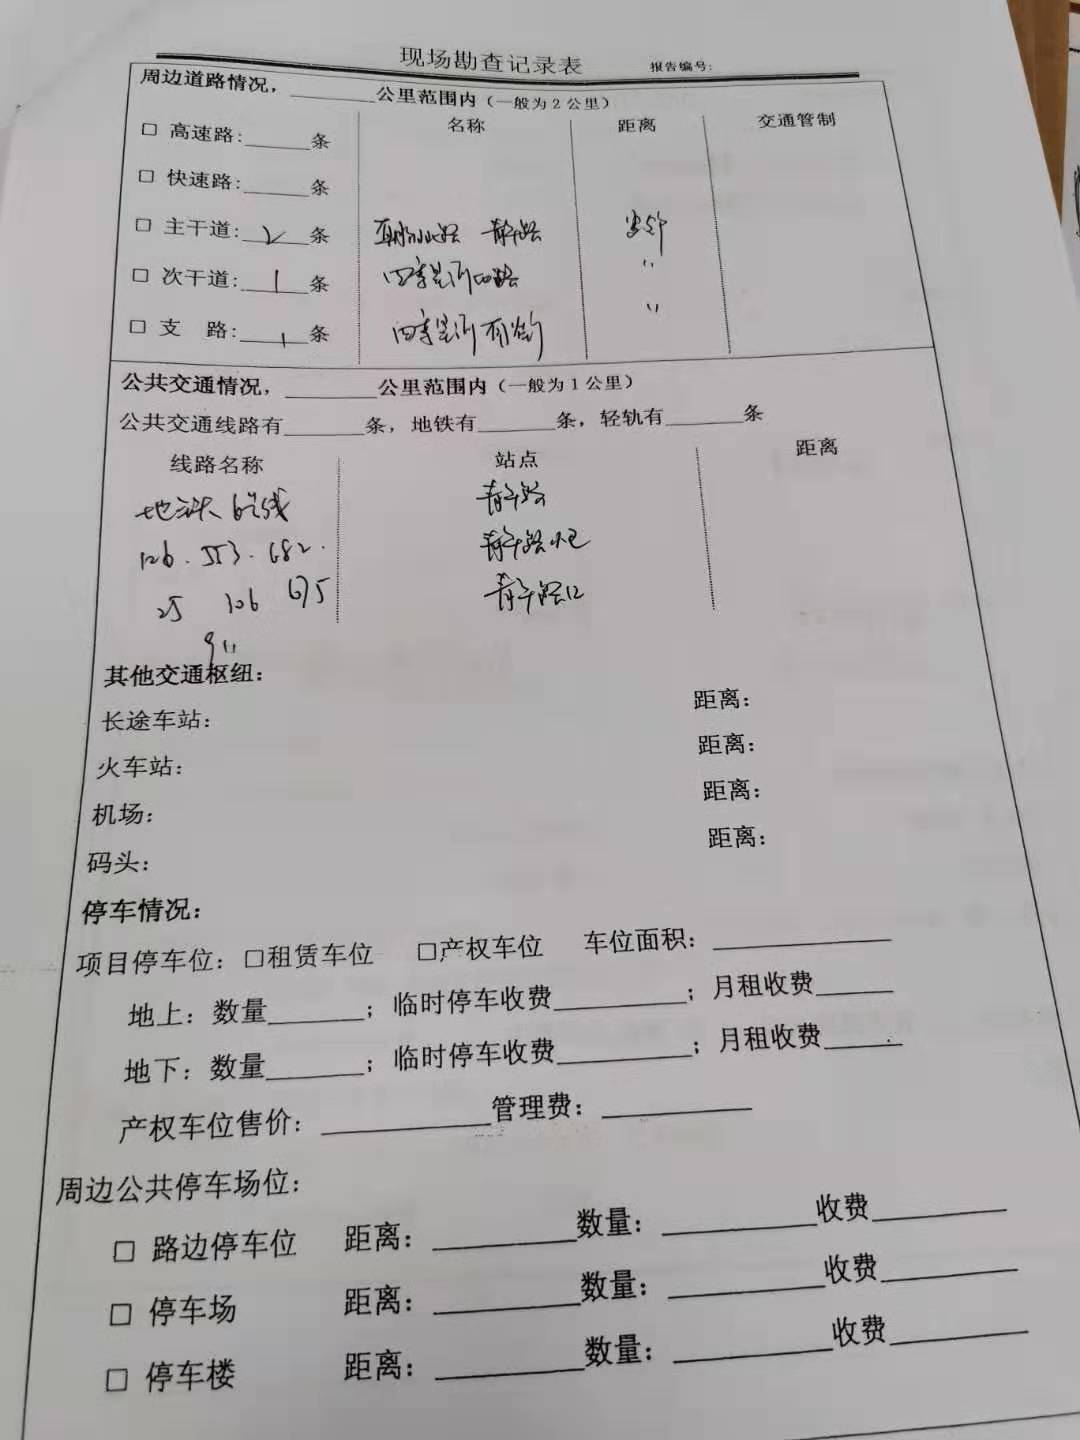 现场勘查记录表 报告编号:
周边道路情况，________公里范围内（一般为2公里）
名称 距离 交通管制
□ 高速路:______条
□ 快速路:______条
□ 主干道:__2__条 朝阳北路 青年路
□ 次干道:__1__条 四季星河西路 〃
□ 支 路:__1__条 四季星河南街 〃
公共交通情况，________公里范围内（一般为1公里）
公共交通线路有_______条，地铁有_______条，轻轨有_______条
线路名称 站点 距离
地铁6号线 青年路
126.553.682. 青年路北
25 106 675 青年路口
911
其他交通枢纽：
长途车站： 距离：
火车站： 距离：
机场： 距离：
码头： 距离：
停车情况：
项目停车位：□租赁车位 □产权车位 车位面积：____________
地上：数量_______；临时停车收费_________；月租收费_____
地下：数量_______；临时停车收费_________；月租收费_____
产权车位售价：___________管理费：__________
周边公共停车场位：
□ 路边停车位 距离：_________数量：_________收费________
□ 停车场 距离：_________数量：_________收费________
□ 停车楼 距离：_________数量：_________收费________